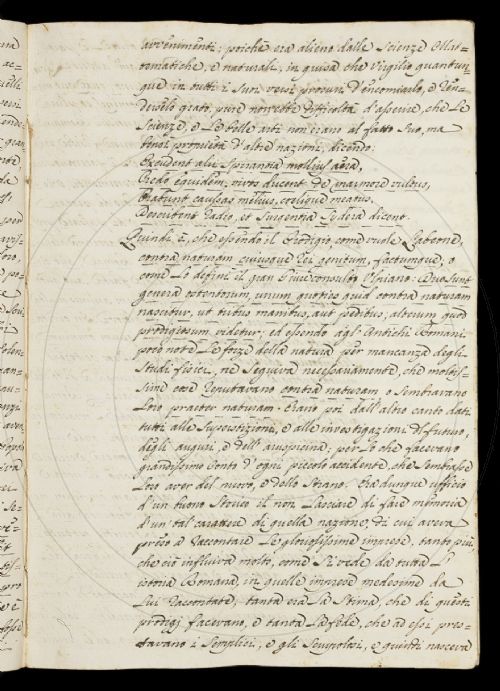 avvenimenti; poichè era alieno dalle Scienze Mat-
tematiche, e naturali, in guisa che Virgilio quantun
que in tutti i suoi versi procuri d'encomiarlo, e ren-
derselo grato, pure non ebbe difficoltà d'asserire, che le
Scienze, e le belle arti non erano al fatto suo, ma
bensì proprietà d'altre nazioni, dicendo:
Excudent alii spirantia mollius aera,
Credo equidem, vivos ducent de marmore vultus,
Orabunt caussas melius, coelique meatus,
Describent radio, et surgentia sidera dicent.
Quindi è, che essendo il Prodigio, come vuole
contra naturam cuiusque rei genitum, factumque, o
come lo definì il gran Giureconsulto Ulpiano: Duo sunt
genera ostentorum, unum quoties quid contra naturam
nascitur, ut tribus manibus, aut pedibus; alterum quod
prodigiosum videtur; ed essendo agl' Antichi Romani
poco note le forze della natura per mancanza degli
Studi fisici, ne seguiva necessariamente, che moltis-
sime cose reputavano contra naturam, o sembravano
loro praeter naturam. Erano poi dall'altro canto dati
tutti alle Superstizioni, e alle investigazioni del futuro,
degli auguri, e dell'auspicina; per lo che facevano
grandissimo conto d'ogni piccolo accidente, che sembrasse
loro aver del nuovo, e dello strano. Era dunque ufficio
d'un buono Storico il non lasciare di fare memoria
d'un tal carattere di quella nazione, di cui aveva
preso a raccontare le gloriosissime imprese, tanto più,
che ciò influiva molto, come si vede da tutta l'
istoria Romana, in quelle imprese medesime da
lui raccontate, tanta era la stima, che di questi
prodigj facevano, e tanta la fede, che ad essi pres-
tavano i semplici, e gli scrupolosi, e quindi nasceva